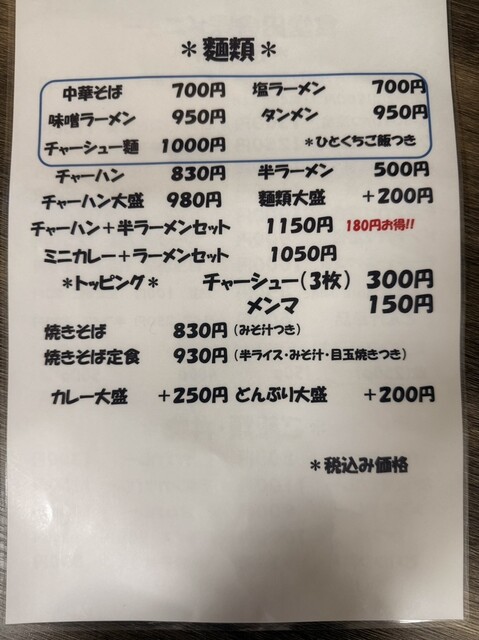 ＊麺類＊
中華そば 700円 塩ラーメン 700円
味噌ラーメン 950円 タンメン 950円
チャーシュー麺 1000円 ＊ひとくちご飯つき
チャーハン 830円 半ラーメン 500円
チャーハン大盛 980円 麺類大盛 ＋200円
チャーハン＋半ラーメンセット 1150円 180円お得!!
ミニカレー＋ラーメンセット 1050円
＊トッピング＊ チャーシュー(3枚) 300円
メンマ 150円
焼きそば 830円(みそ汁つき)
焼きそば定食 930円(半ライス・みそ汁・目玉焼きつき)
カレー大盛 ＋250円 どんぶり大盛 ＋200円
＊税込み価格